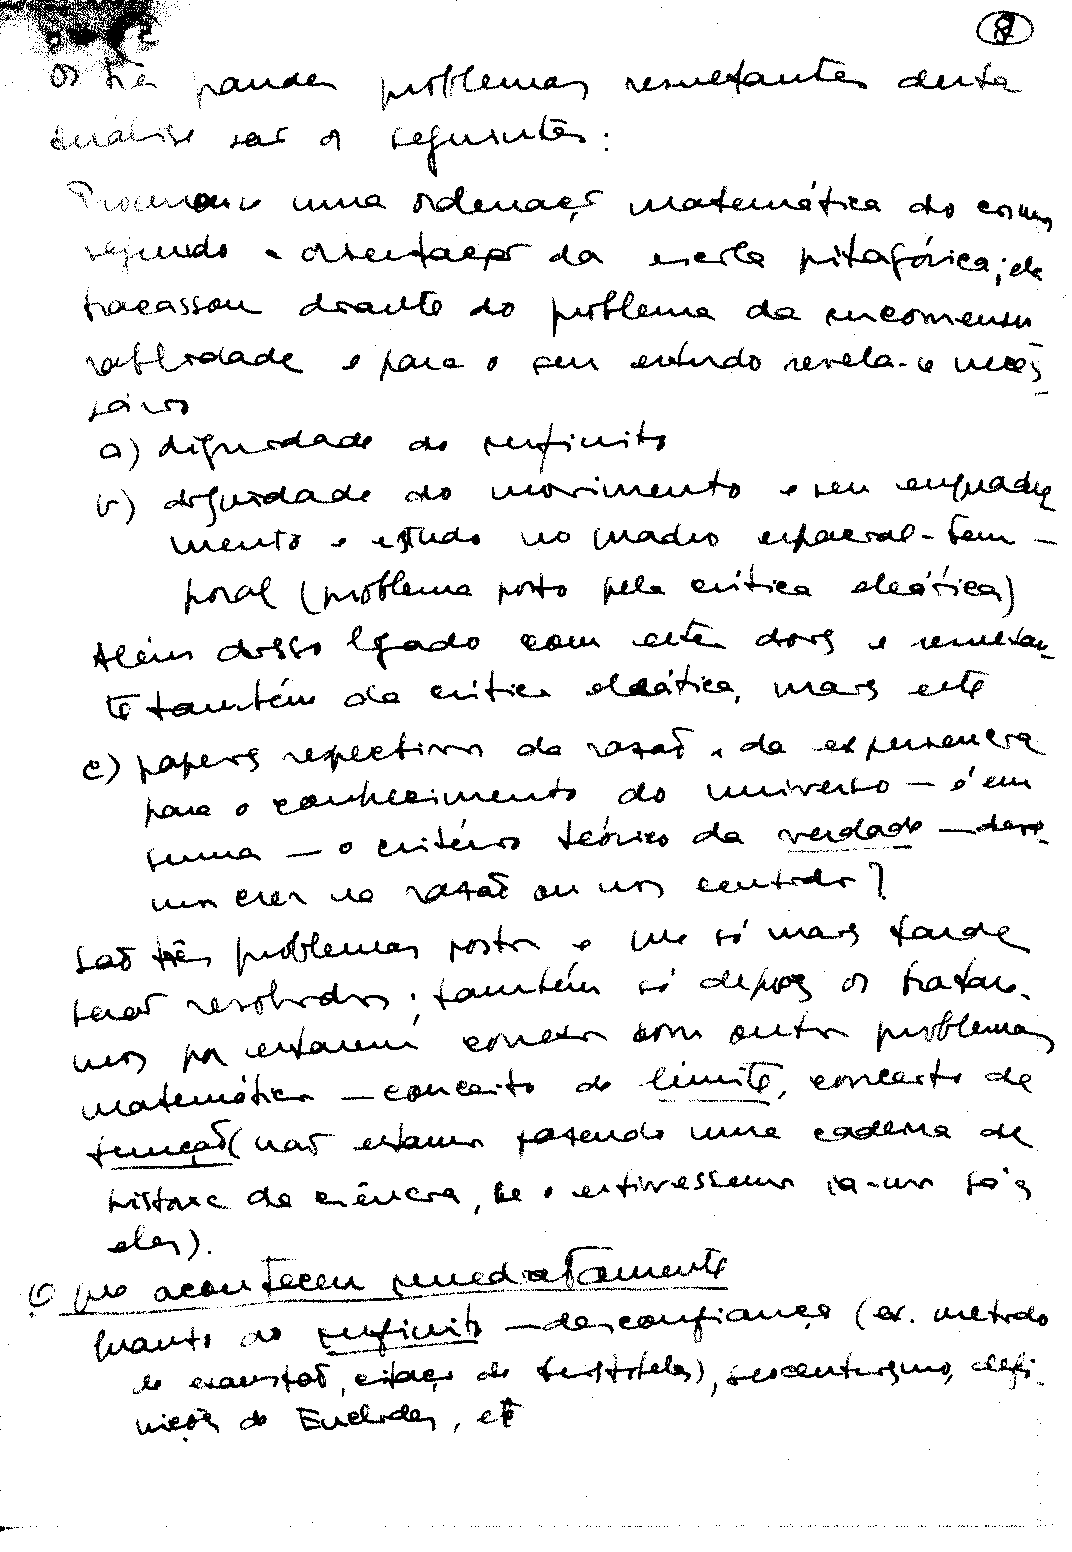 8
Os três grandes problemas resultantes desta
análise são os seguintes:
Procurou-se uma ordenação matemática do cosmos
segundo a orientação da escola pitagórica; ela
fracassou diante do problema da incomensu
rabilidade e para o seu estudo revela-se neces-
sário
a) dignidade do infinito
b) dignidade do movimento e seu enquadra
mento e estudo no quadro espacial-tem-
poral (problema posto pela crítica eleática)
Além disso ligado com estes dois e resultan-
te também da crítica eleática, mais este
c) papeis respectivos da razão e da experiencia
para o conhecimento do universo — é em
suma — o critério teórico da verdade — deve-
mos crer na razão ou nos sentidos?
São três problemas postos e que só mais tarde
serão resolvidos; também só depois os tratare-
mos por estarem conexos com outros problemas
matemáticos — conceito de limite, conceito de
função (não estamos fazendo uma cadeira de
história da ciência, se o estivessemos ia-mos já a
eles).
O que aconteceu imediatamente
Quanto ao infinito — desconfiança (ex. metodo
de exaustão, citação de Aristóteles), defi-
nições de Euclides, etc